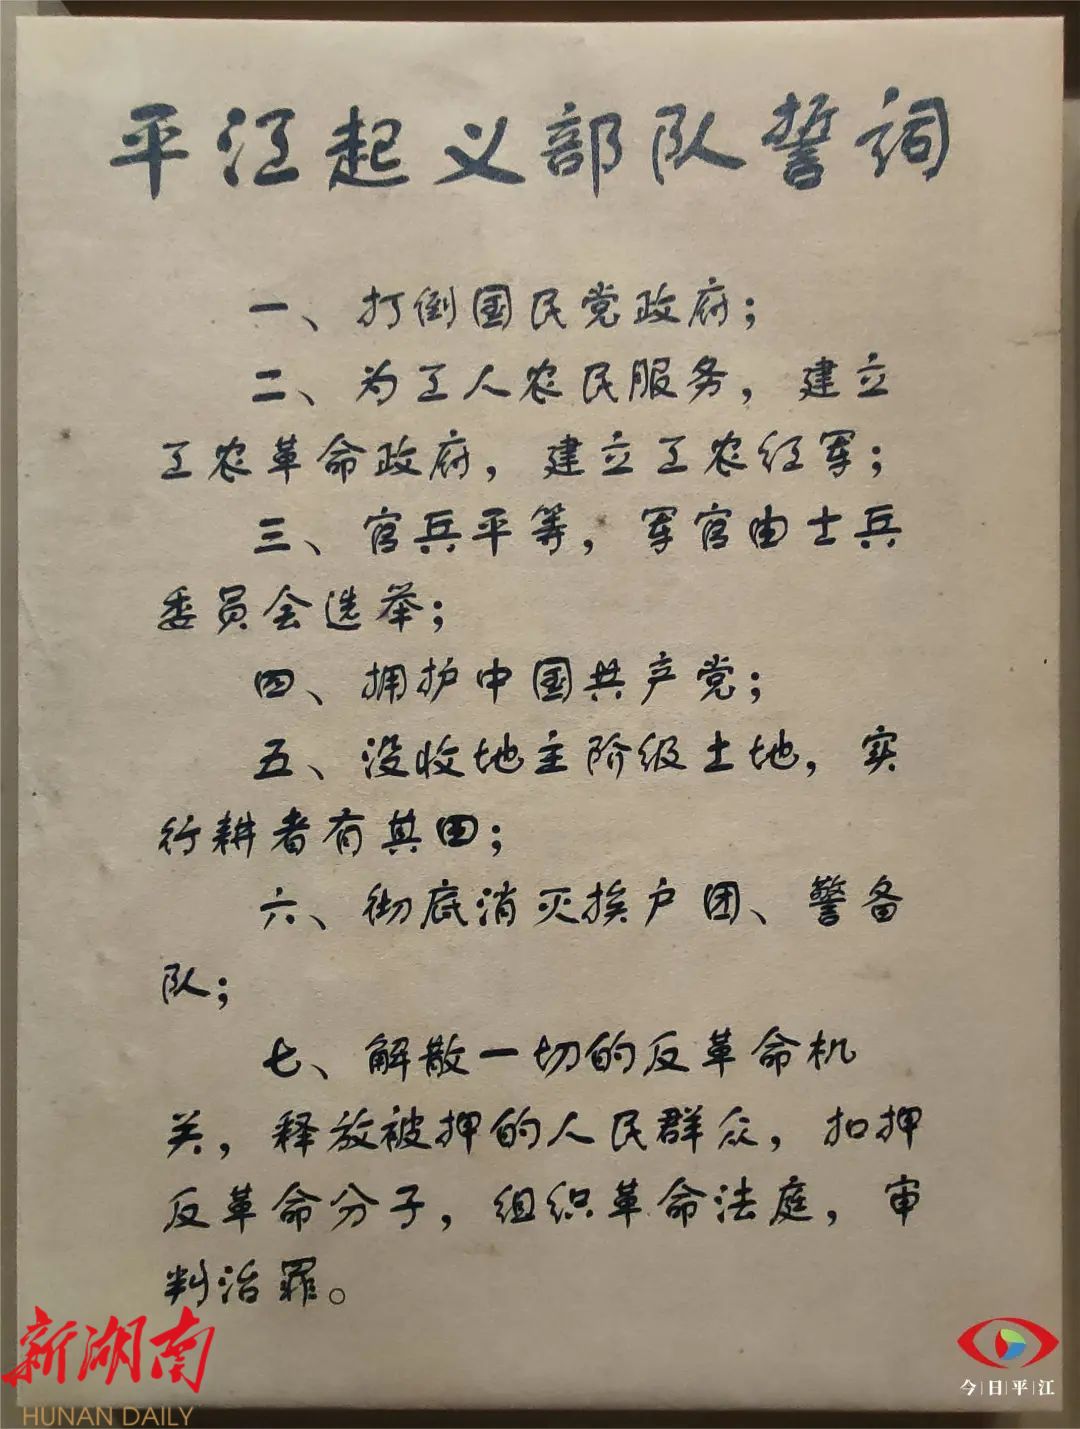 平江起义部队誓词
一、打倒国民党政府；
二、为工人农民服务，建立
工农革命政府，建立工农红军；
三、官兵平等，军官由士兵
委员会选举；
四、拥护中国共产党；
五、没收地主阶级土地，实
行耕者有其田；
六、彻底消灭挨户团、警备
队；
七、解散一切的反革命机
关，释放被押的人民群众，扣押
反革命分子，组织革命法庭，审
判治罪。
新湖南
HUNAN DAILY
今|日|平|江